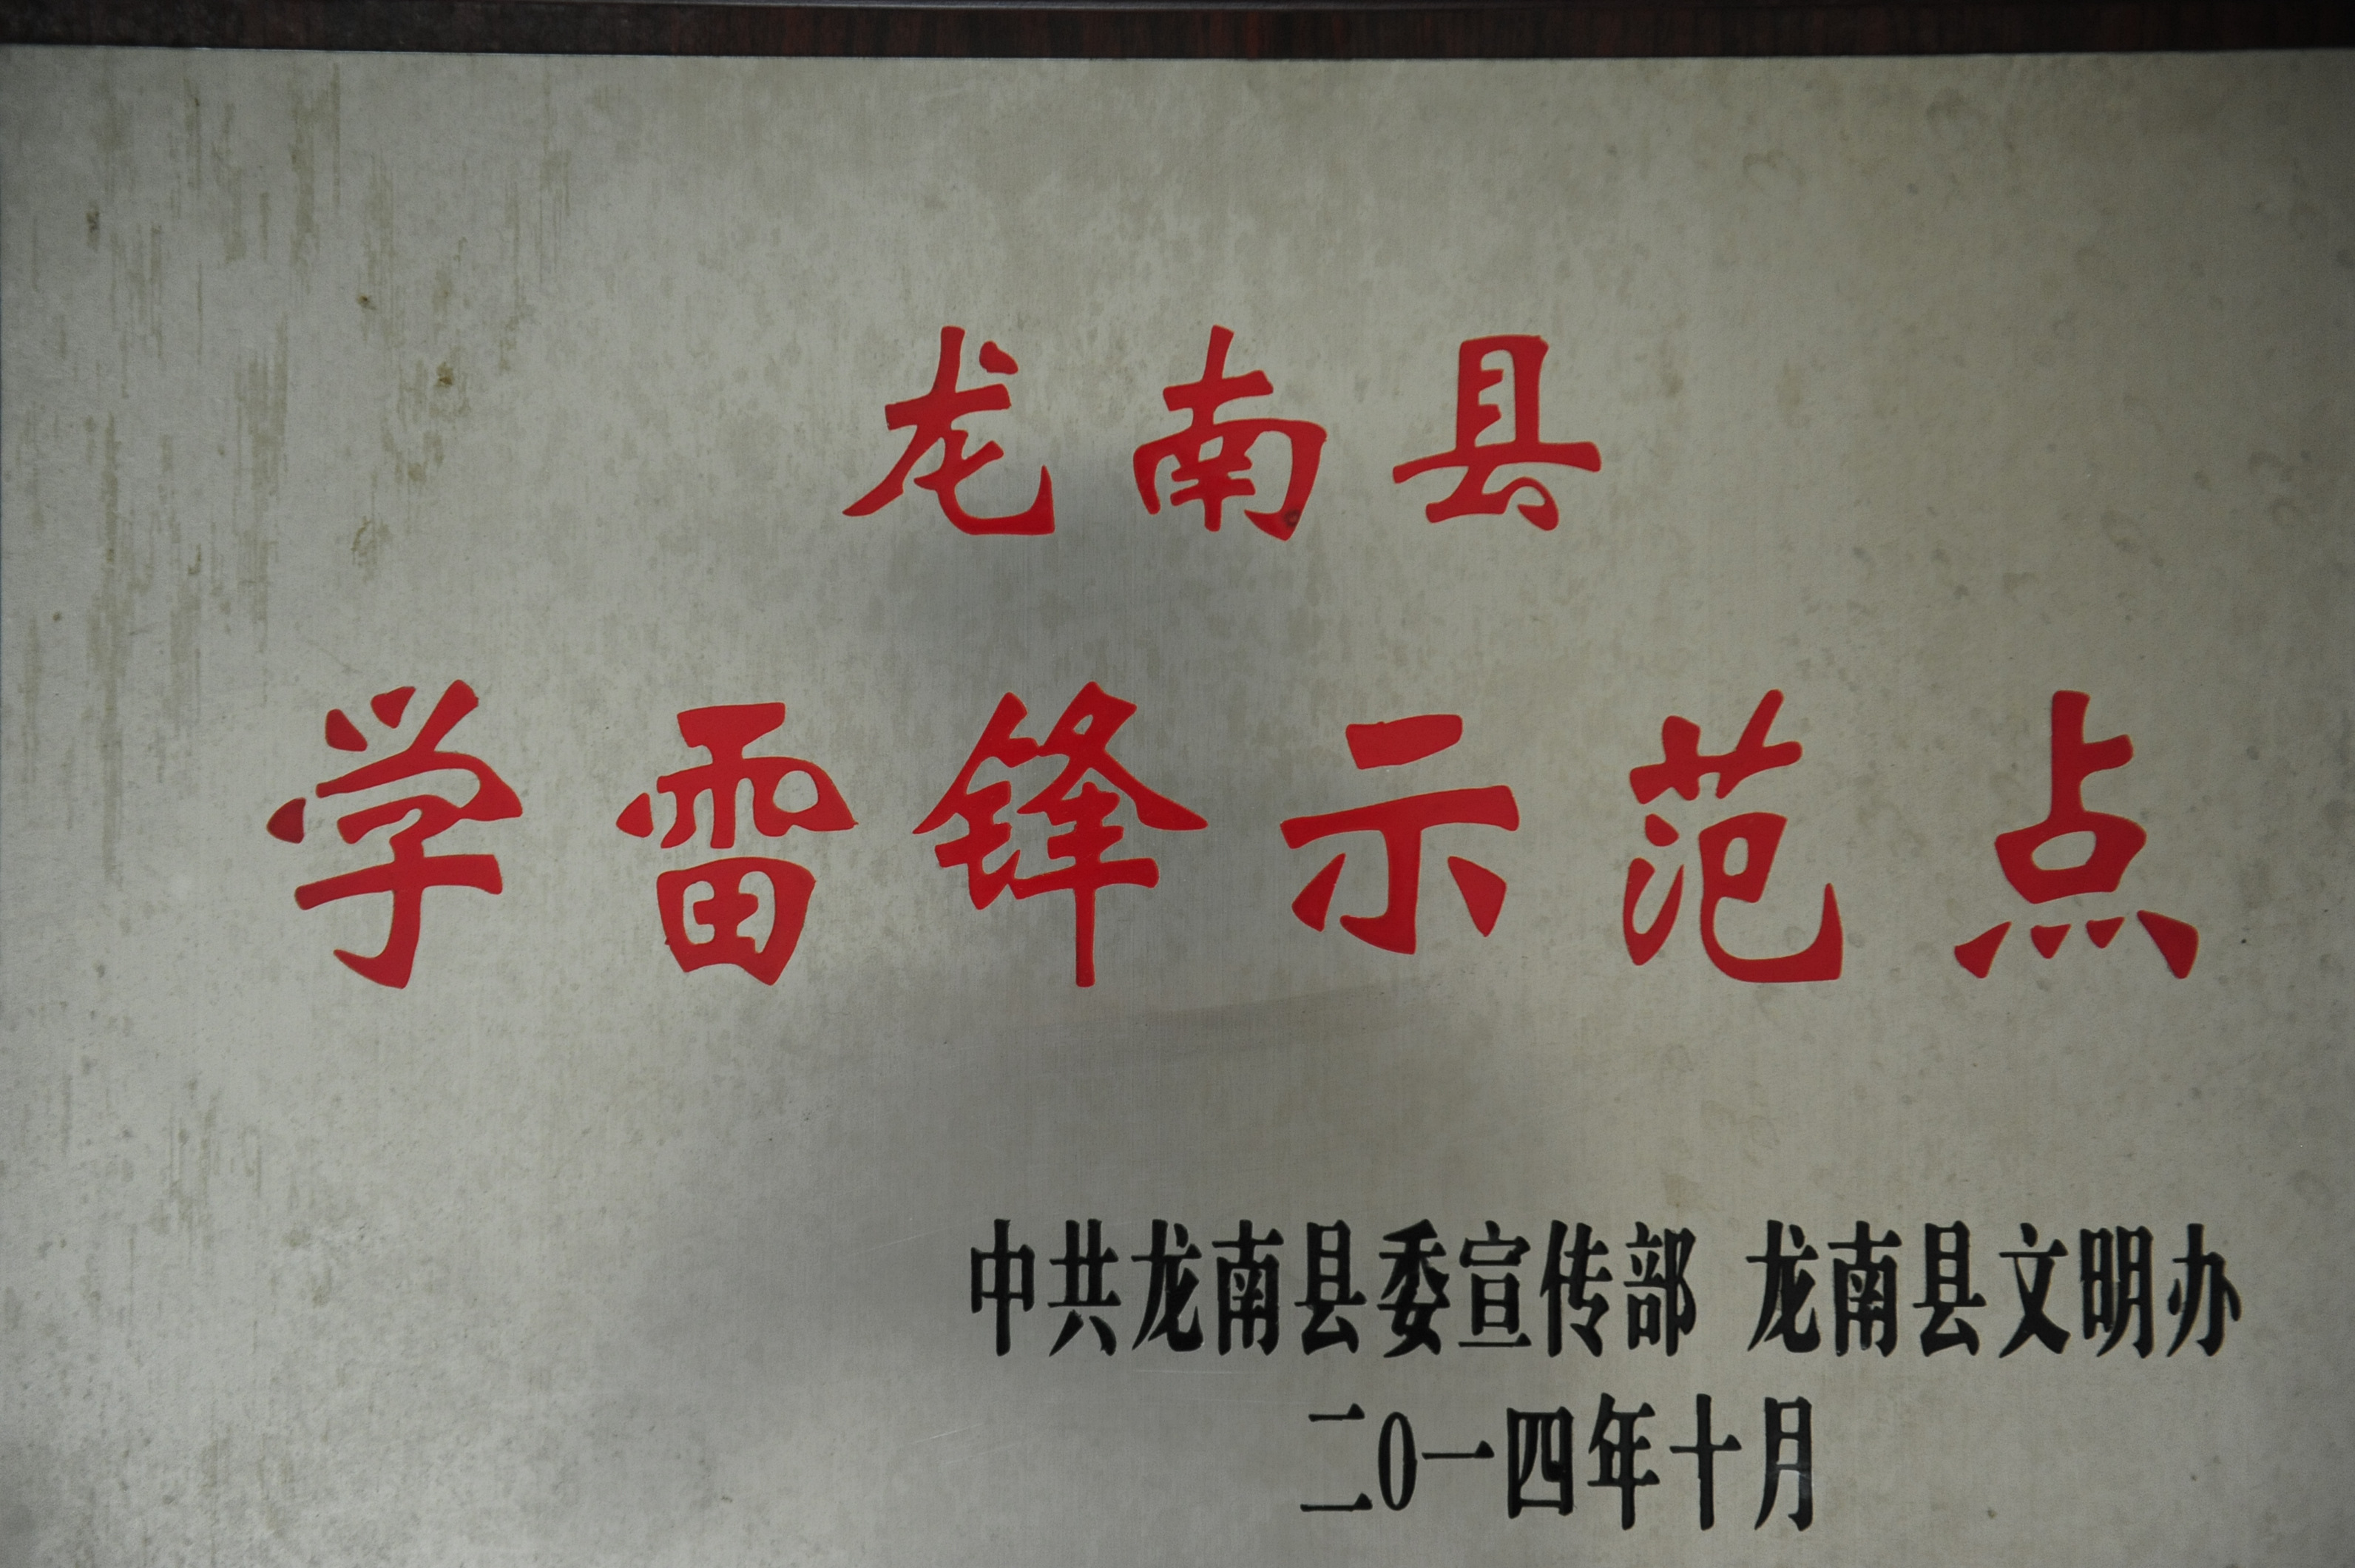 龙南县
学雷锋示范点
中共龙南县委宣传部 龙南县文明办
二0一四年十月